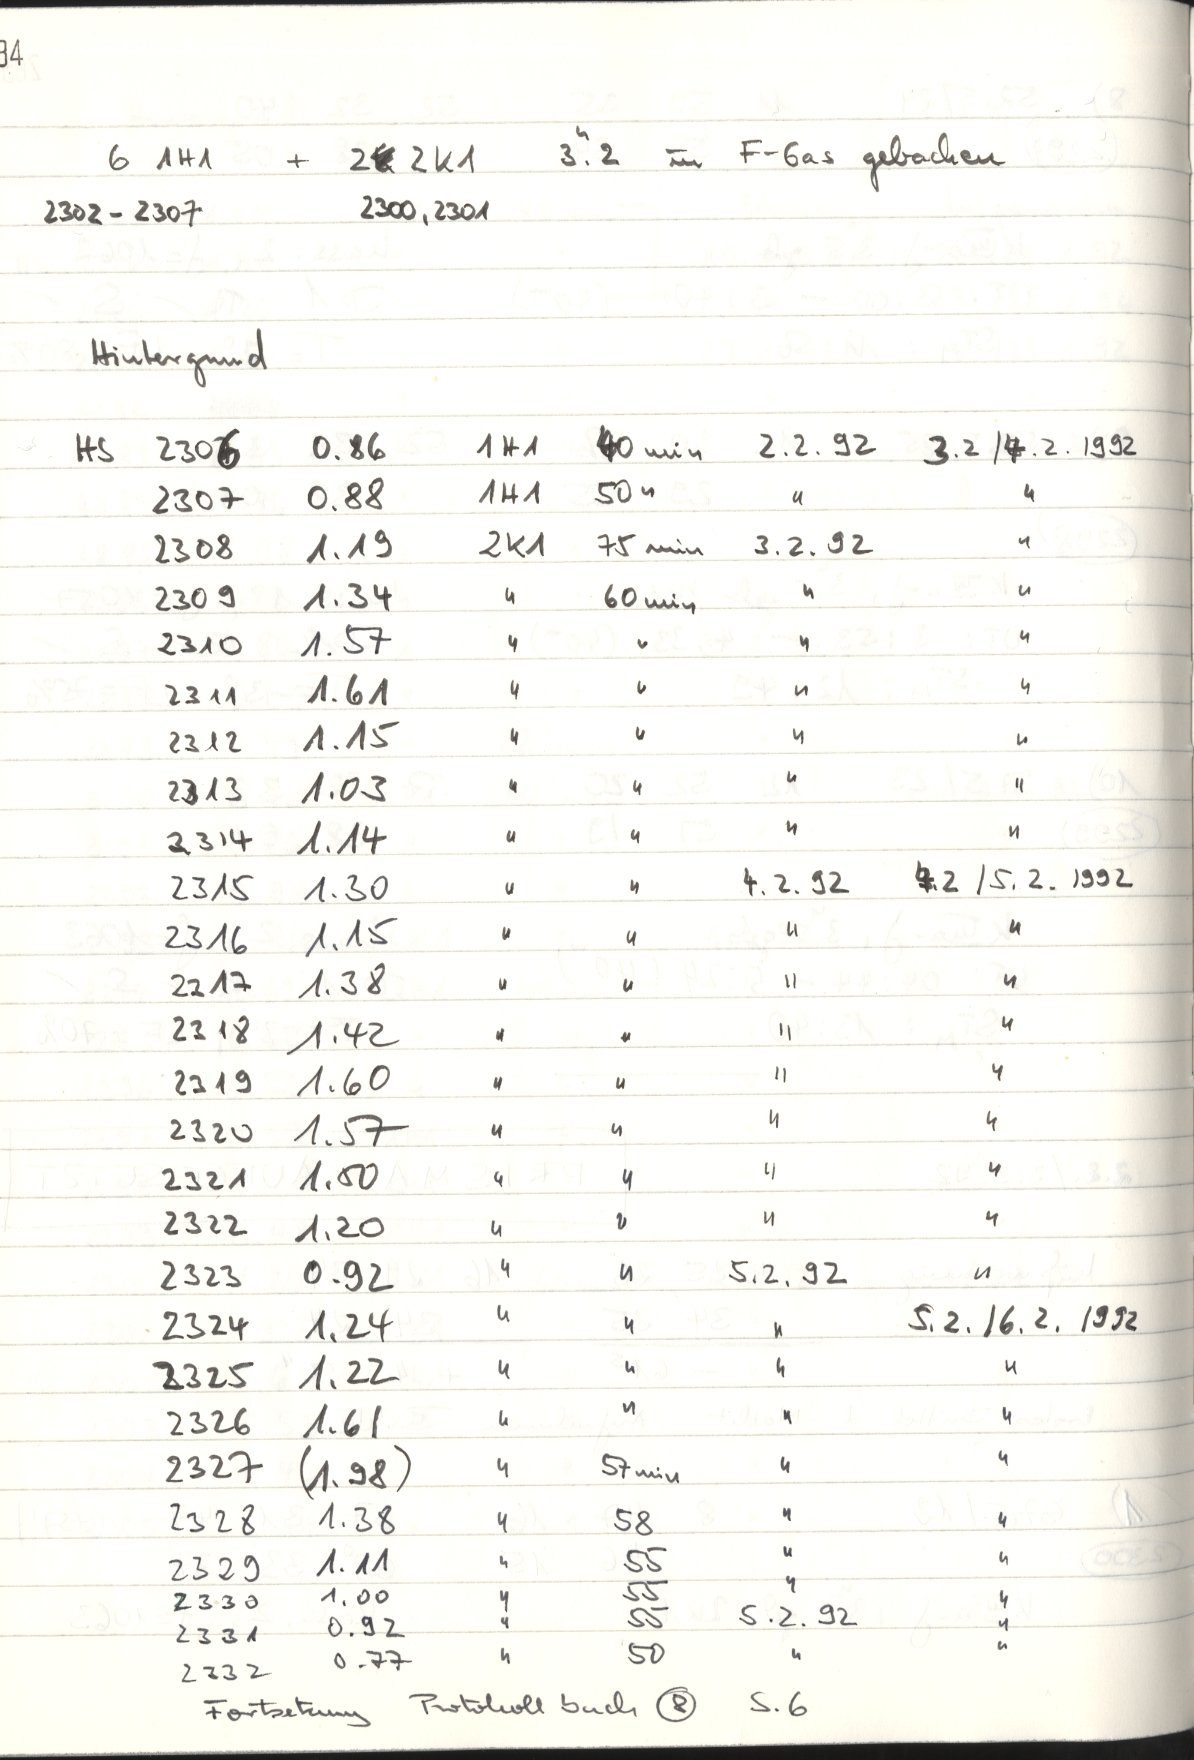 84
6 1H1 + 2 2K1 3.2 in F-Gas gebacken
2302 - 2307 2300, 2301
Hintergrund
HS 2306 0.86 1H1 40 min 2.2.92 3.2 / 4.2. 1992
2307 0.88 1H1 50 " " "
2308 1.19 2K1 75 min 3.2.92 "
2309 1.34 " 60 min " "
2310 1.57 " " " "
2311 1.61 " " " "
2312 1.15 " " " "
2313 1.03 " " " "
2314 1.14 " " " "
2315 1.30 " " 4.2.92 4.2 / 5.2. 1992
2316 1.15 " " " "
2217 1.38 " " " "
2318 1.42 " " " "
2319 1.60 " " " "
2320 1.57 " " " "
2321 1.50 " " " "
2322 1.20 " " " "
2323 0.92 " " 5.2.92 "
2324 1.24 " " " 5.2. / 6.2. 1992
2325 1.22 " " " "
2326 1.61 " " " "
2327 (1.98) " 57 min " "
2328 1.38 " 58 " "
2329 1.11 " 55 " "
2330 1.00 " 55 " "
2331 0.92 " 55 5.2.92 "
2332 0.77 " 50 " "
Fortsetzung Protokollbuch 8 S.6